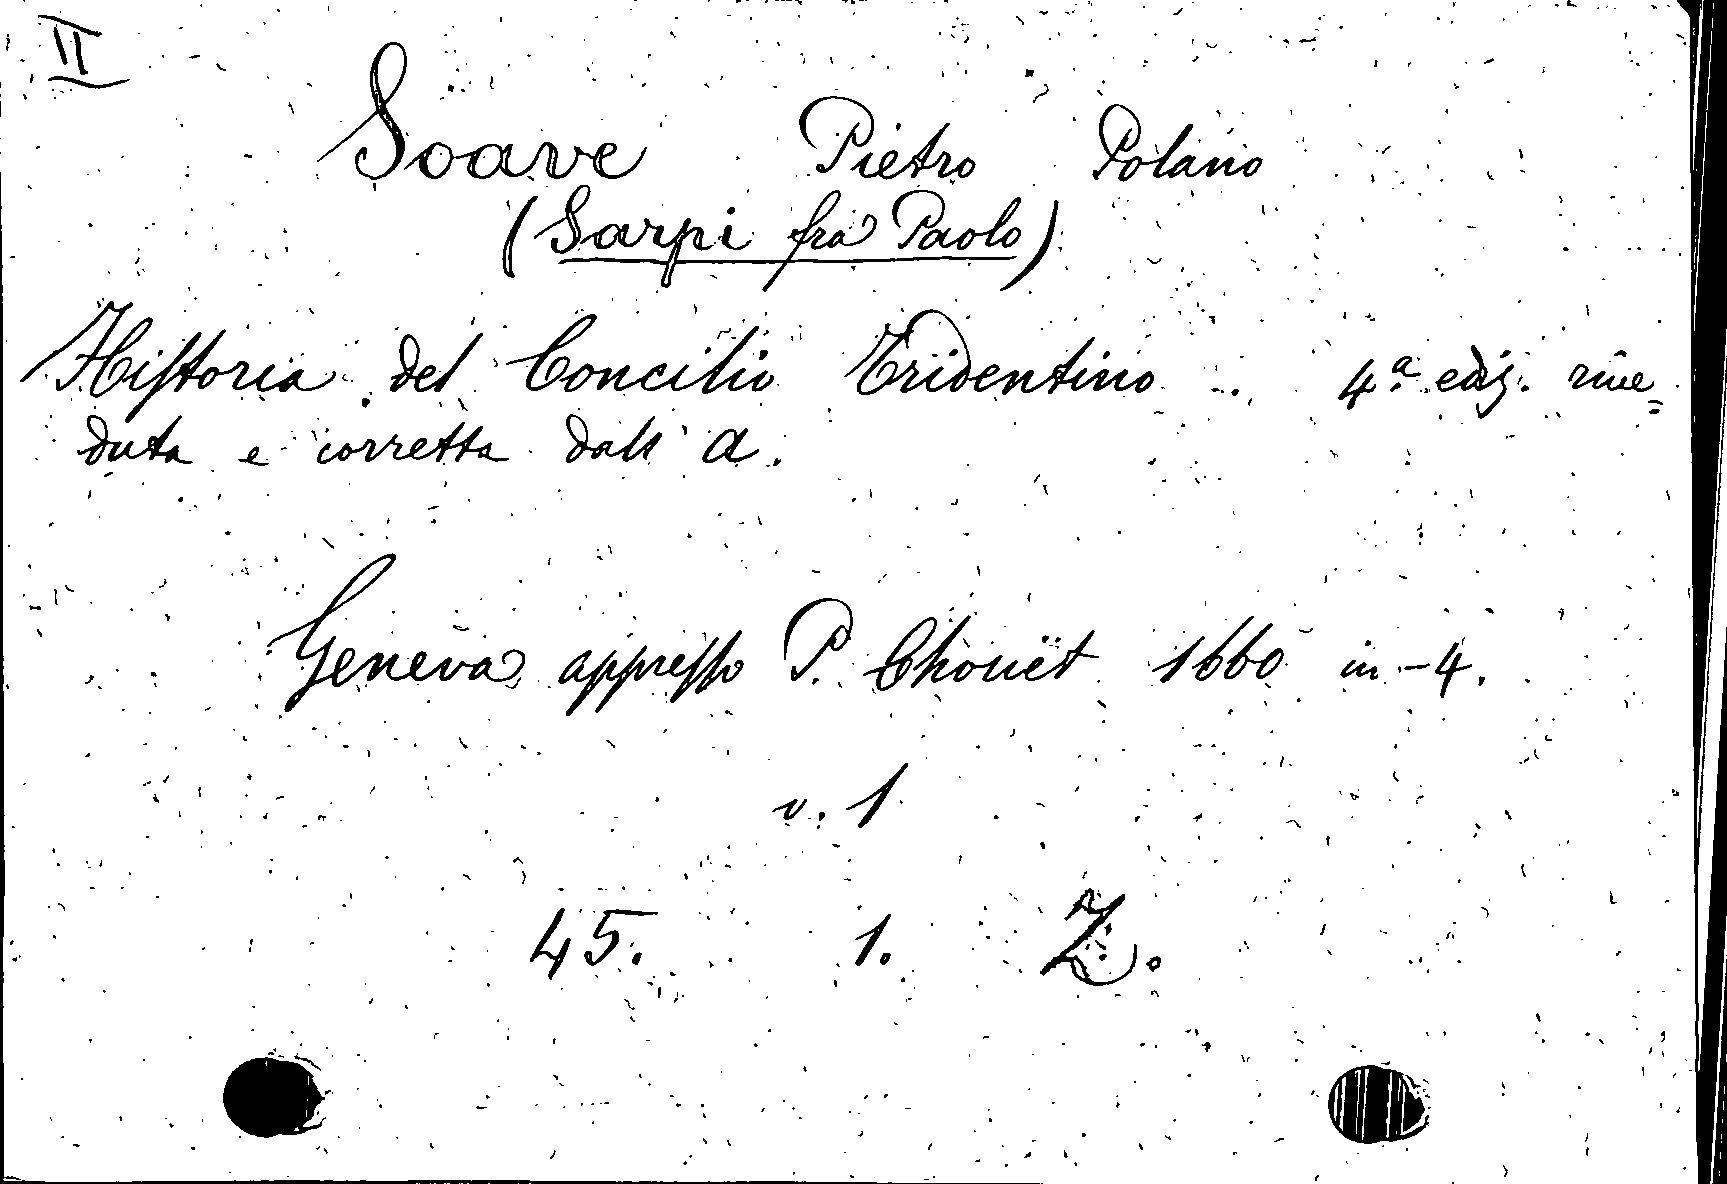 II
Soave Pietro Polano
(Sarpi fra Paolo)
Hiſtoria del Concilio Tridentino. 4ª ediz. rive=
duta e corretta dall' A.
Geneva appreſſo P. Chouët 1660 in-4.
v. 1
45. 1. Z.